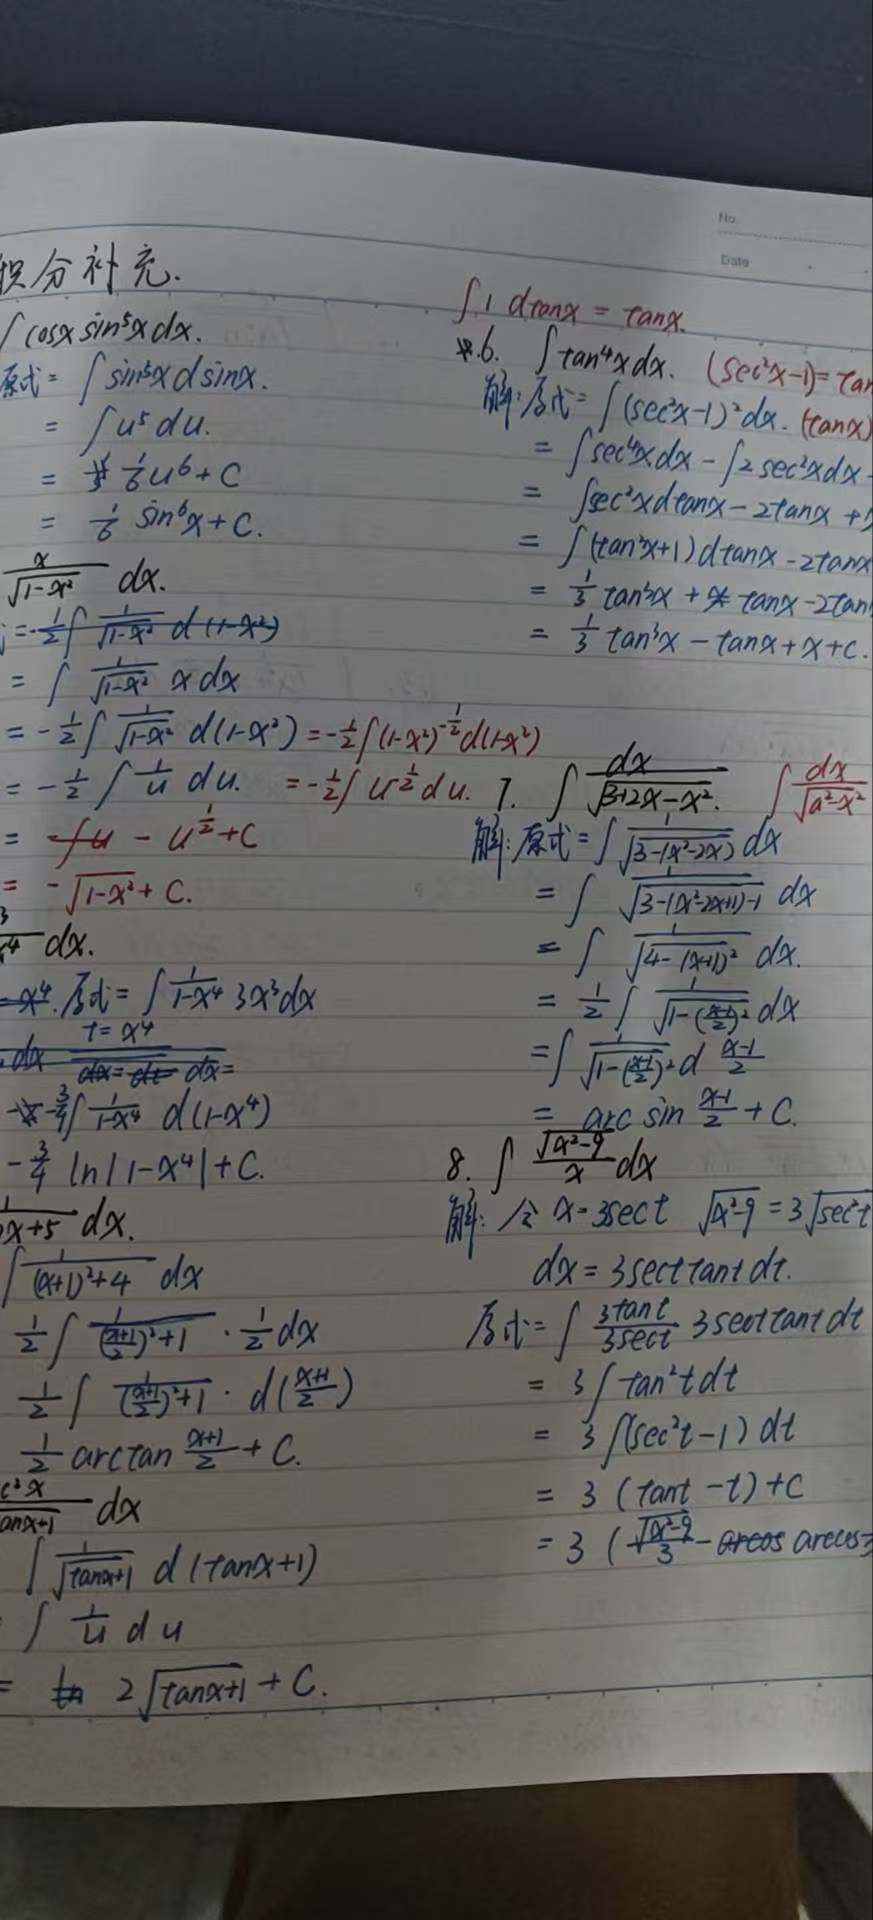 No.
Date
积分补充.
∫cosx sin⁵x dx.
原式 = ∫ sin⁵x d sinx.
= ∫ u⁵ du.
= 1/6 u⁶ + C
= 1/6 sin⁶x + C.
x/√(1-x²) dx.
= -1/2 ∫ 1/√(1-x²) d(1-x²)
= ∫ 1/√(1-x²) x dx
= -1/2 ∫ 1/√(1-x²) d(1-x²) = -1/2 ∫(1-x²)^(-1/2) d(1-x²)
= -1/2 ∫ 1/u du. = -1/2 ∫ u^(1/2) du.
= - u^(1/2) + C
= -√(1-x²) + C.
dx.
原式 = ∫ 1/(1-x⁴) 3x³dx
t = x⁴
dx = dt dx =
-3/4 ∫ 1/(1-x⁴) d(1-x⁴)
-3/4 ln|1-x⁴| + C.
x+5 dx.
∫ 1/((x+1)²+4) dx
1/2 ∫ 1/(((x+1)/2)²+1) · 1/2 dx
1/2 ∫ 1/(((x+1)/2)²+1) · d((x+1)/2)
1/2 arctan (x+1)/2 + C.
dx
∫ 1/√(tanx+1) d(tanx+1)
∫ 1/u du
= 2√(tanx+1) + C.
∫ 1 dtanx = tanx.
*6. ∫ tan⁴x dx. (sec²x-1) = tan
解: 原式 = ∫ (sec²x-1)² dx. (tanx)
= ∫ sec⁴x dx - ∫ 2 sec²x dx
= ∫ sec²x dtanx - 2tanx +
= ∫ (tan²x+1) dtanx - 2tanx
= 1/3 tan³x + tanx - 2tan
= 1/3 tan³x - tanx + x + C.
7. ∫ dx/√(3+2x-x²). ∫ dx/√(a²-x²)
解: 原式 = ∫ 1/√(3-(x²-2x)) dx
= ∫ 1/√(3-(x²-2x+1)-1) dx
= ∫ 1/√(4-(x+1)²) dx.
= 1/2 ∫ 1/√(1-((x-1)/2)²) dx
= ∫ 1/√(1-((x-1)/2)²) d (x-1)/2
= arc sin (x-1)/2 + C.
8. ∫ √(x²-9)/x dx
解: 令 x = 3sect √(x²-9) = 3√(sec²t
dx = 3sect tant dt.
原式 = ∫ 3tant/3sect 3sect tant dt
= 3 ∫ tan²t dt
= 3 ∫(sec²t-1) dt
= 3 (tant - t) + C
= 3 (√(x²-9)/3 - arcos arccos